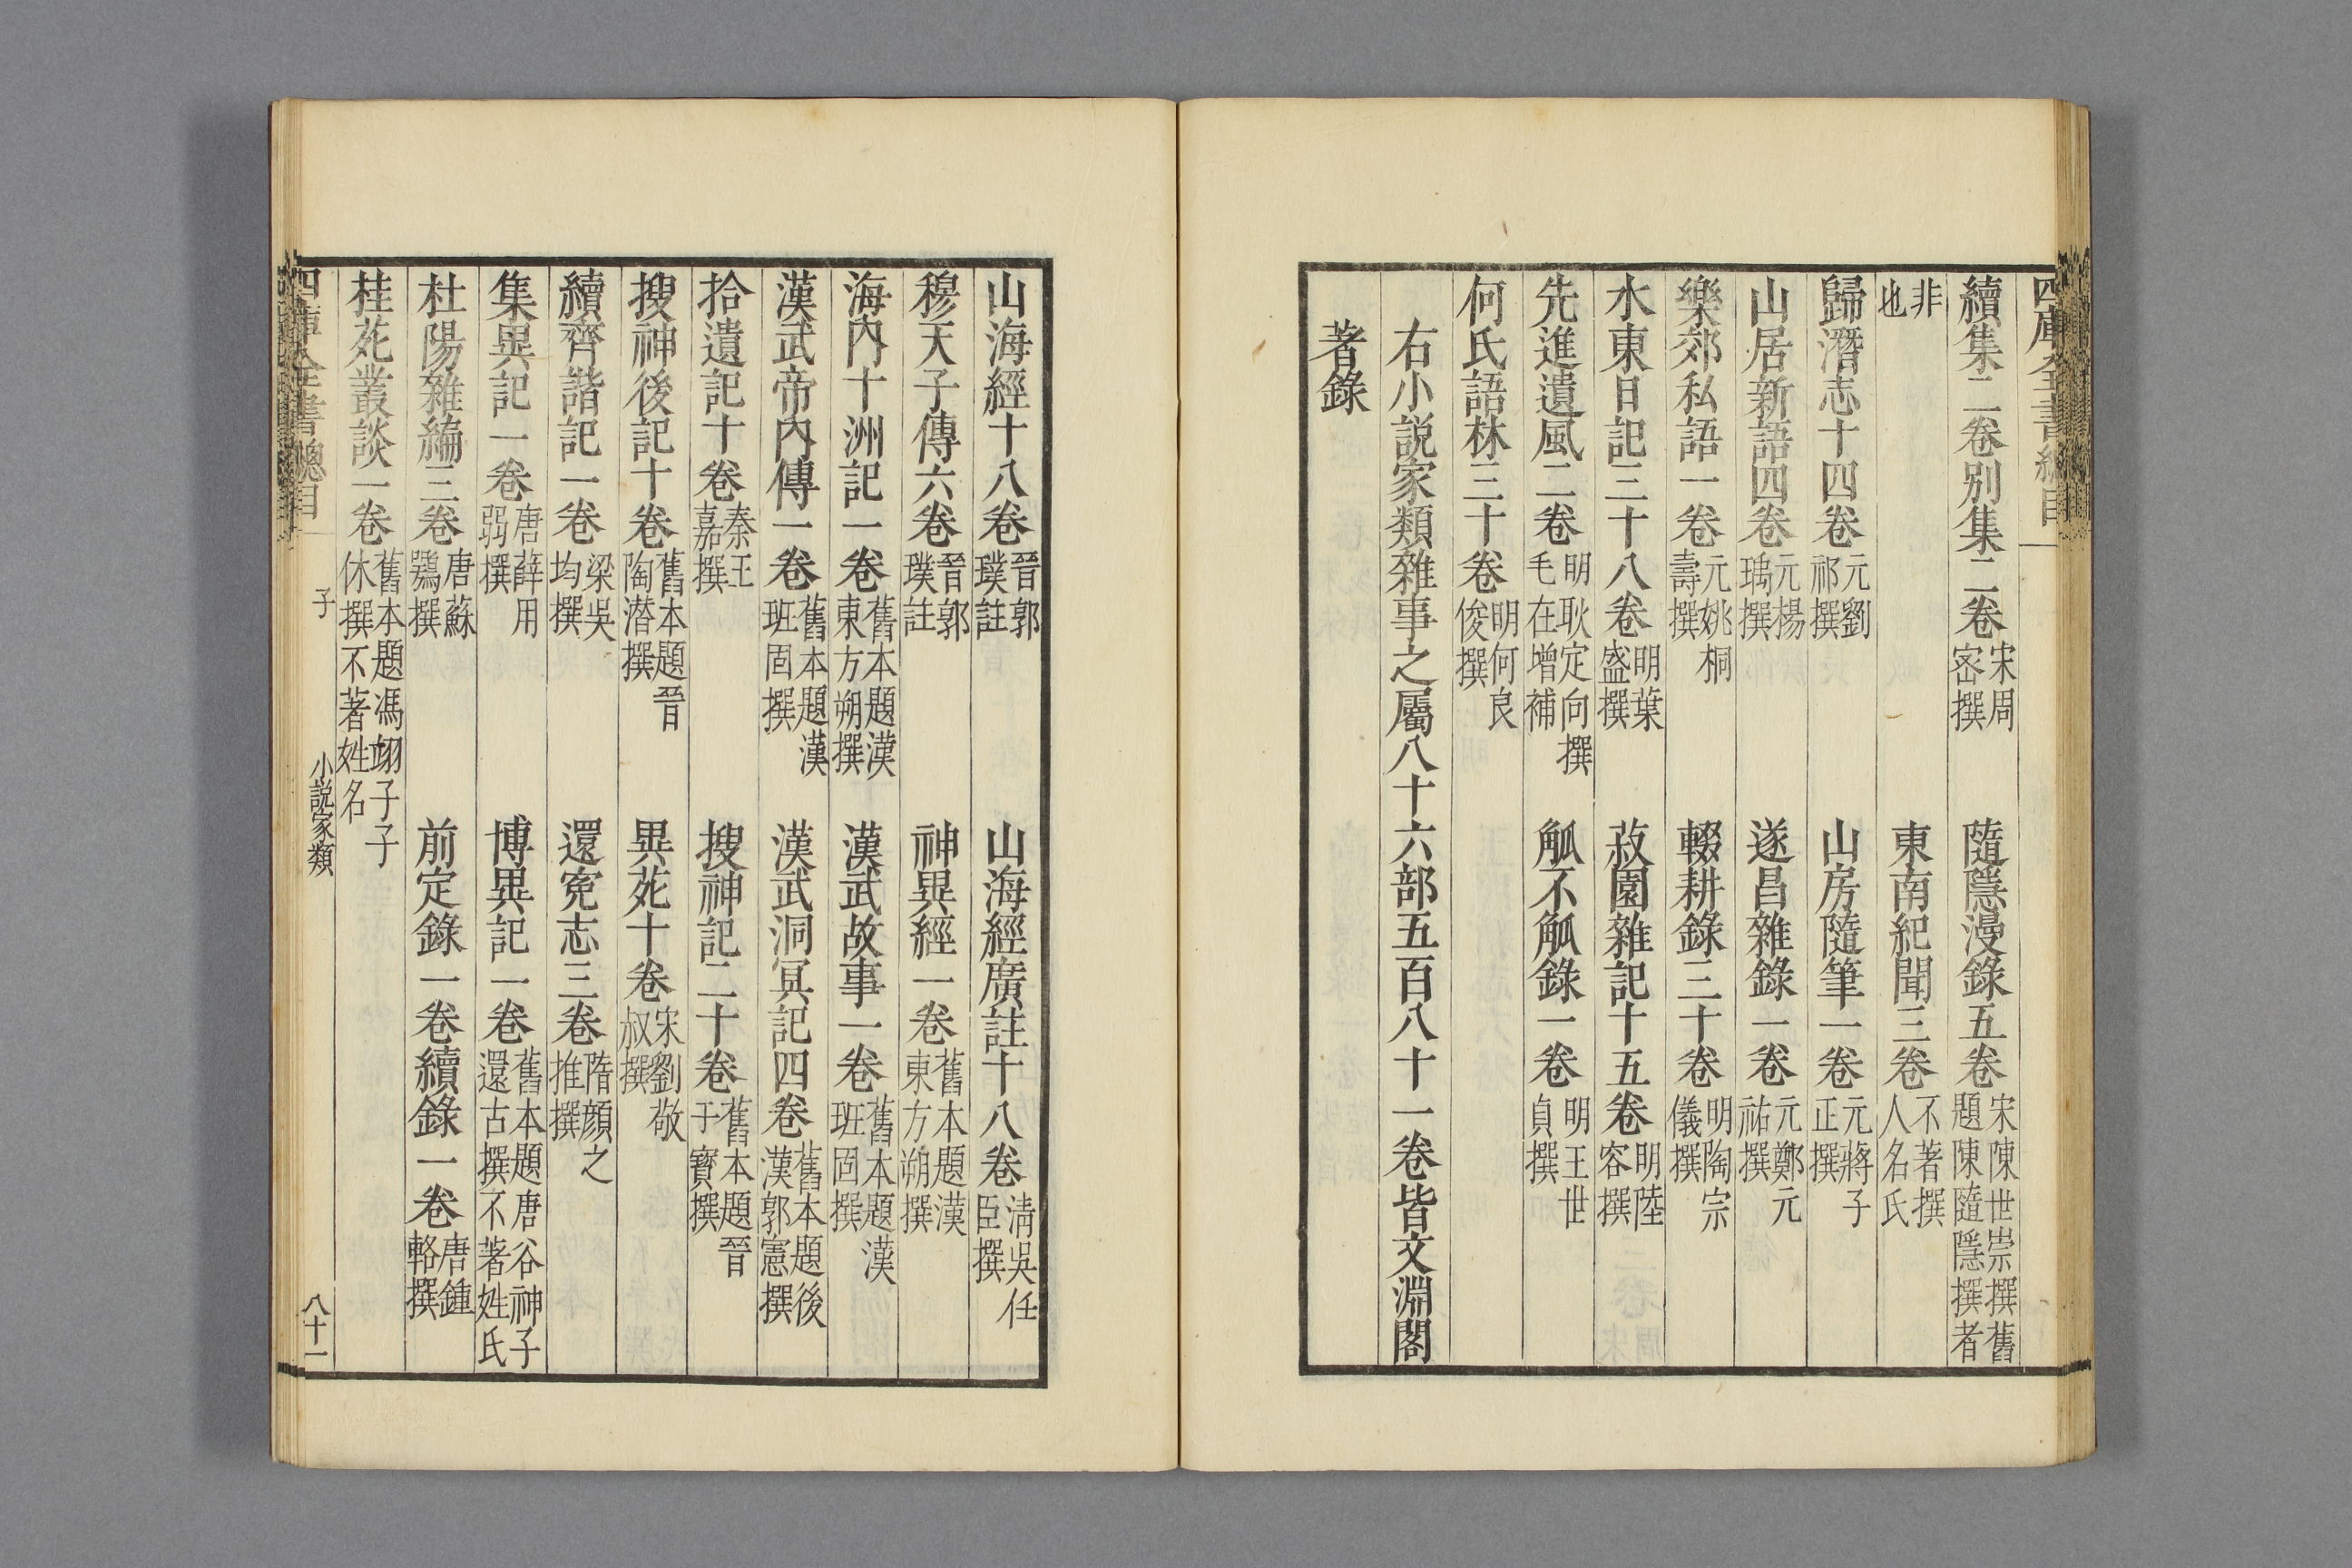 四庫全書總目
續集二卷別集二卷 宋周密撰 隨隱漫錄五卷 宋陳世崇撰舊題陳隨隱撰者
非也 東南紀聞三卷 不著撰人名氏
歸潛志十四卷 元劉祁撰 山房隨筆一卷 元蔣子正撰
山居新語四卷 元楊瑀撰 遂昌雜錄一卷 元鄭元祐撰
樂郊私語一卷 元姚桐壽撰 輟耕錄三十卷 明陶宗儀撰
水東日記三十八卷 明葉盛撰 菽園雜記十五卷 明陸容撰
先進遺風二卷 明耿定向撰毛在增補 觚不觚錄一卷 明王世貞撰
何氏語林三十卷 明何良俊撰
右小說家類雜事之屬八十六部五百八十一卷皆文淵閣
著錄
山海經十八卷 晉郭璞註 山海經廣註十八卷 清吳任臣撰
穆天子傳六卷 晉郭璞註 神異經一卷 舊本題漢東方朔撰
海內十洲記一卷 舊本題漢東方朔撰 漢武故事一卷 舊本題漢班固撰
漢武帝內傳一卷 舊本題漢班固撰 漢武洞冥記四卷 舊本題後漢郭憲撰
拾遺記十卷 秦王嘉撰 搜神記二十卷 舊本題晉于寶撰
搜神後記十卷 舊本題晉陶潛撰 異苑十卷 宋劉敬叔撰
續齊諧記一卷 梁吳均撰 還冤志三卷 隋顏之推撰
集異記一卷 唐薛用弱撰 博異記一卷 舊本題唐谷神子還古撰不著姓氏
杜陽雜編三卷 唐蘇鶚撰 前定錄一卷續錄一卷 唐鍾輅撰
桂苑叢談一卷 舊本題馮翊子子休撰不著姓名
四庫全書總目 子 小說家類 八十一